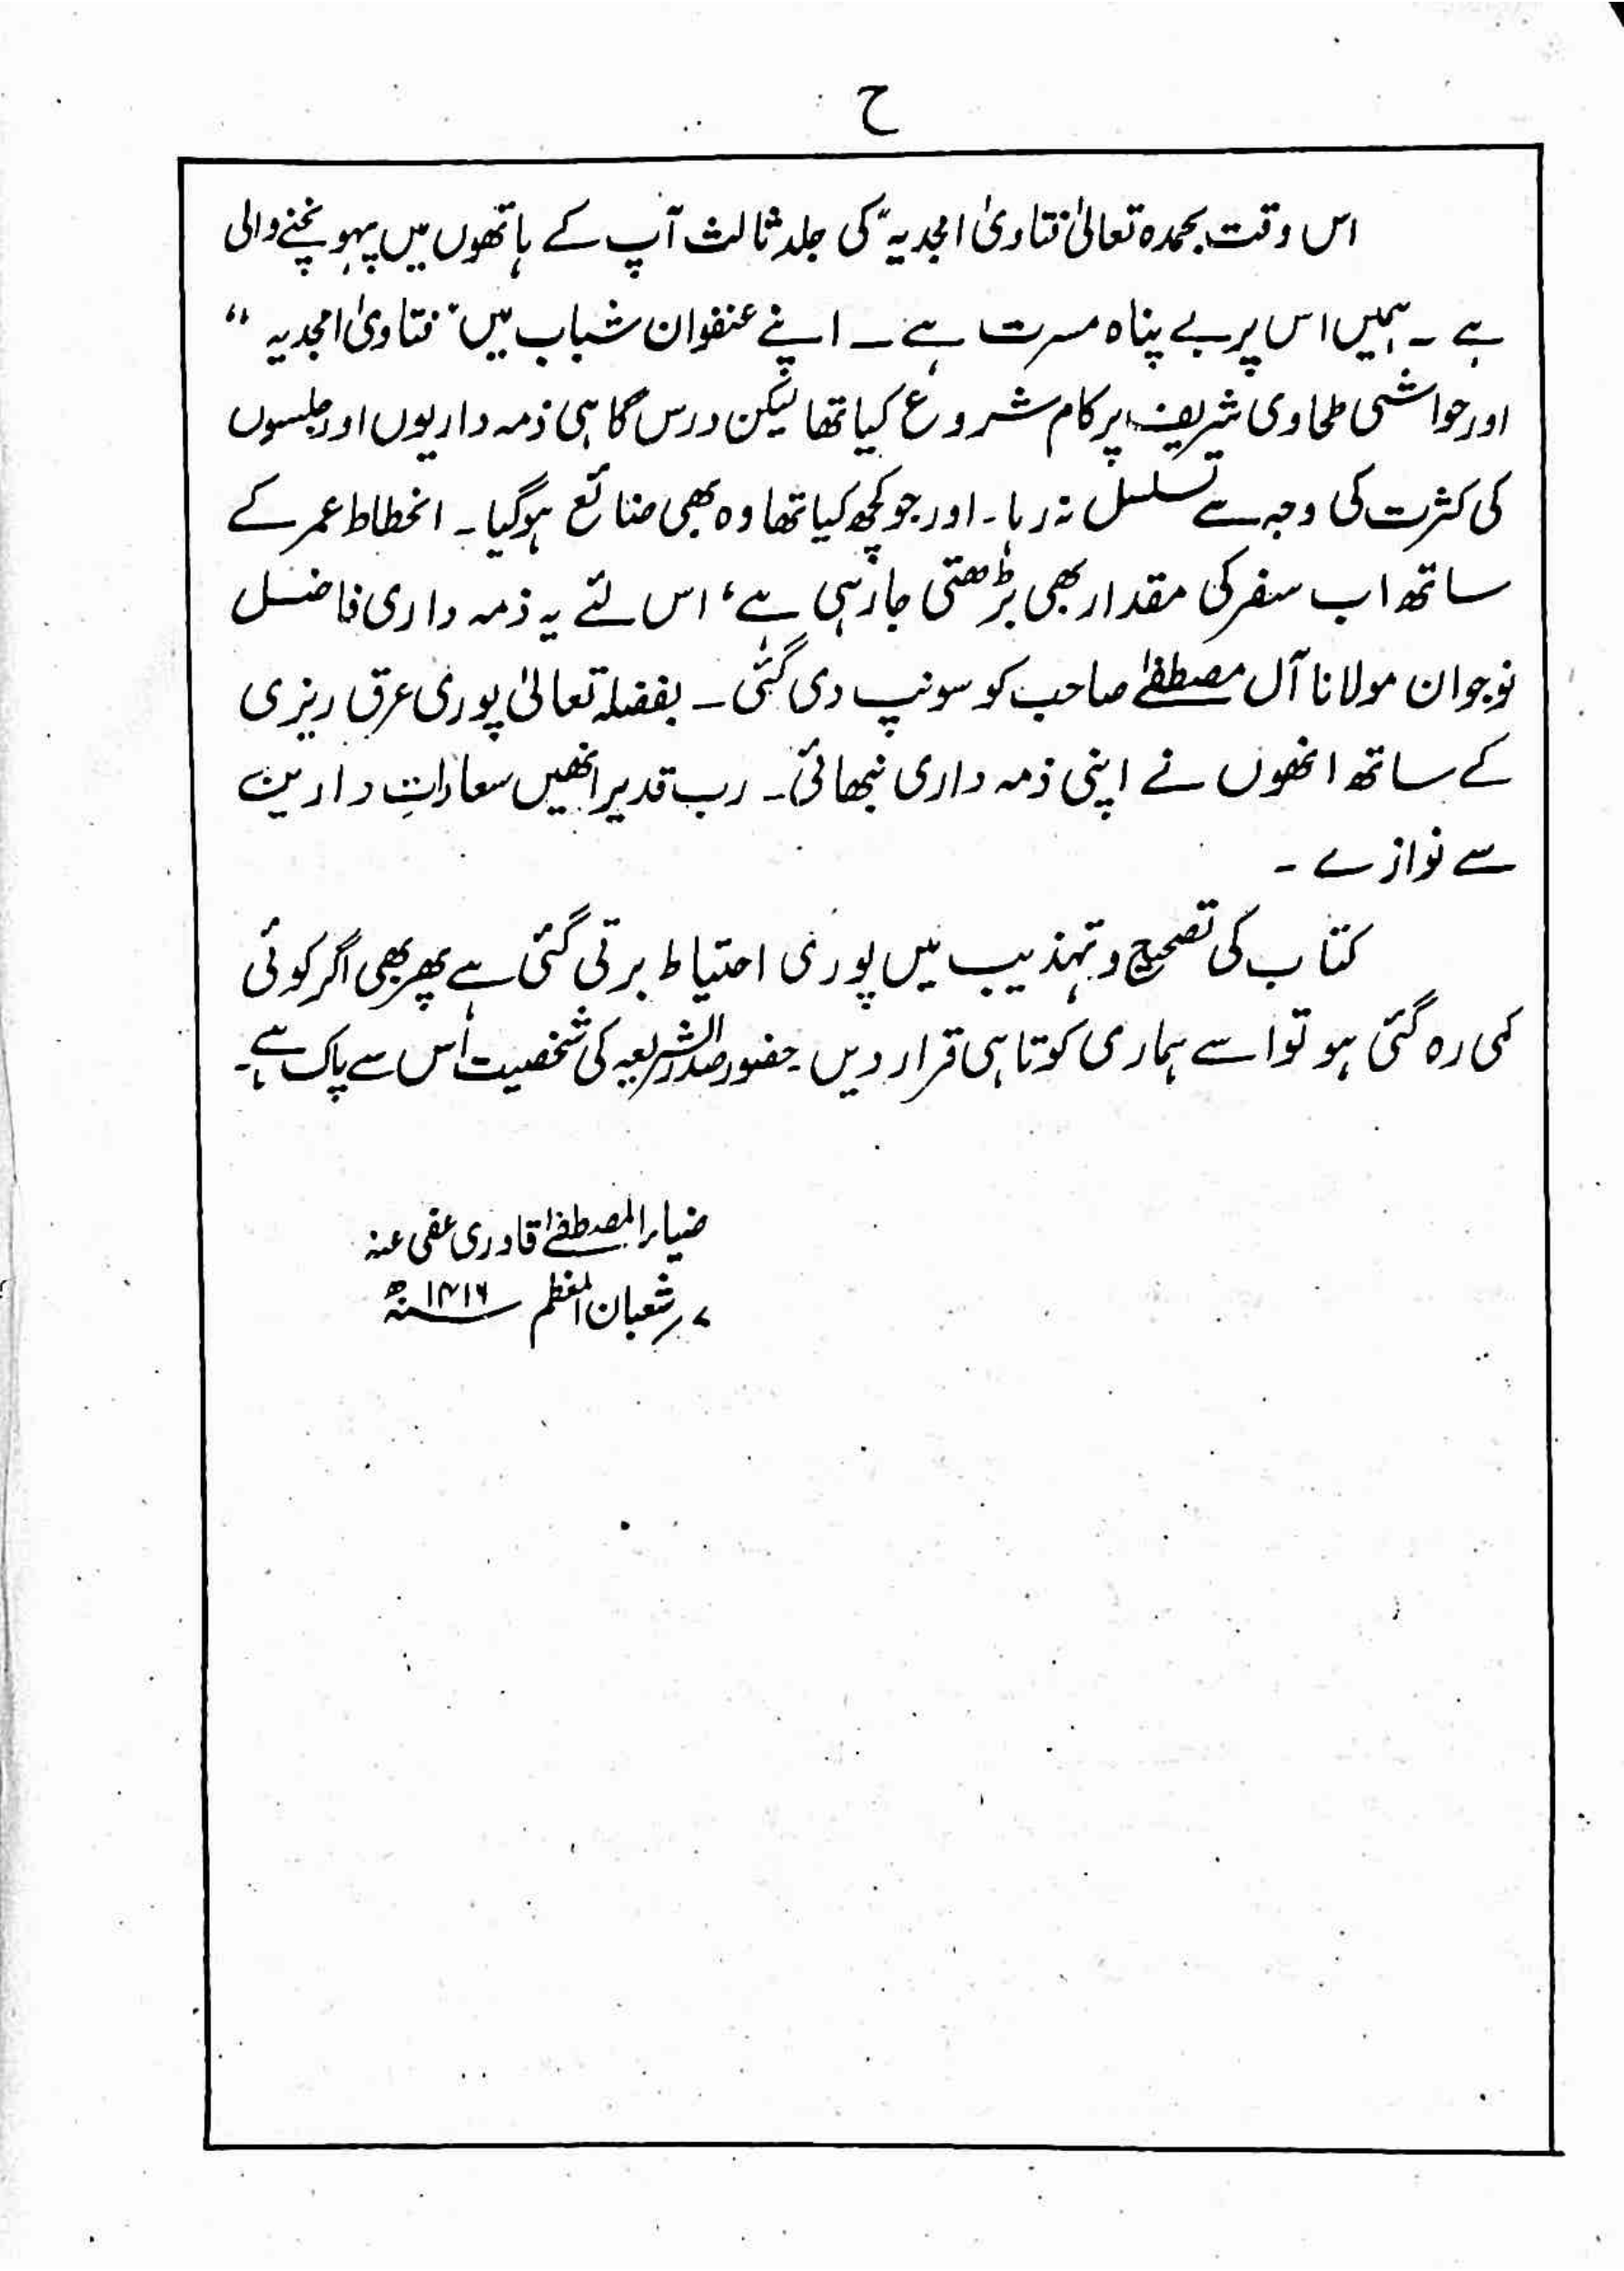 ح
اس وقت بحمدہ تعالیٰ فتاویٰ امجدیہ” کی جلد ثالث آپ کے ہاتھوں میں پہونچنے والی
ہے ۔ ہمیں اس پر بے پناہ مسرت ہے ۔ اپنے عنفوان شباب میں ”فتاویٰ امجدیہ “
اور حواشی طحاوی شریف پر کام شروع کیا تھا لیکن درس گاہی ذمہ داریوں اور جلسوں
کی کثرت کی وجہ سے تسلسل نہ رہا ۔ اور جو کچھ کیا تھا وہ بھی ضائع ہوگیا ۔ انحطاط عمر کے
ساتھ اب سفر کی مقدار بھی بڑھتی جارہی ہے ، اس لئے یہ ذمہ داری فاضل
نوجوان مولانا آل مصطفےٰ صاحب کو سونپ دی گئی ۔ بفضلہ تعالیٰ پوری عرق ریزی
کے ساتھ انھوں نے اپنی ذمہ داری نبھائی ۔ رب قدیر انھیں سعاداتِ دارین
سے نوازے ۔
کتاب کی تصحیح و تہذیب میں پوری احتیاط برتی گئی ہے پھر بھی اگر کوئی
کمی رہ گئی ہو تو اسے ہماری کوتاہی قرار دیں ۔ حضور صدر الشریعہ کی شخصیت اس سے پاک ہے ۔
ضیاء المصطفےٰ قادری عفی عنہ
۷ ر شعبان المعظم ۱۴۱۶ سنہ ھ